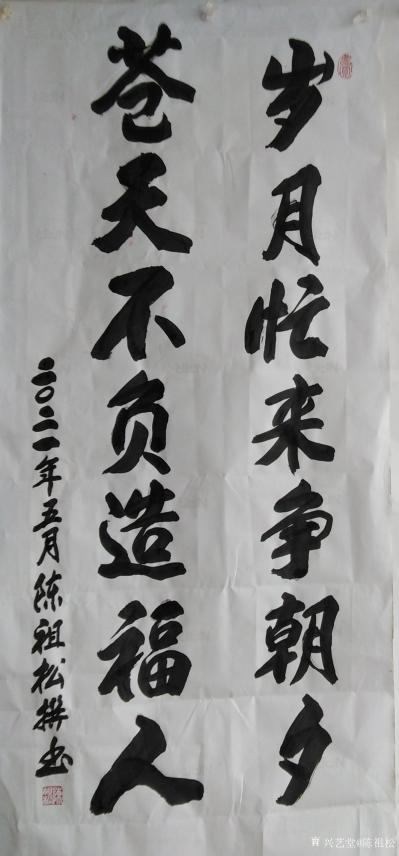 岁月忙来争朝夕
苍天不负造福人
二〇二一年五月陈祖松撰书
兴艺堂@陈祖松